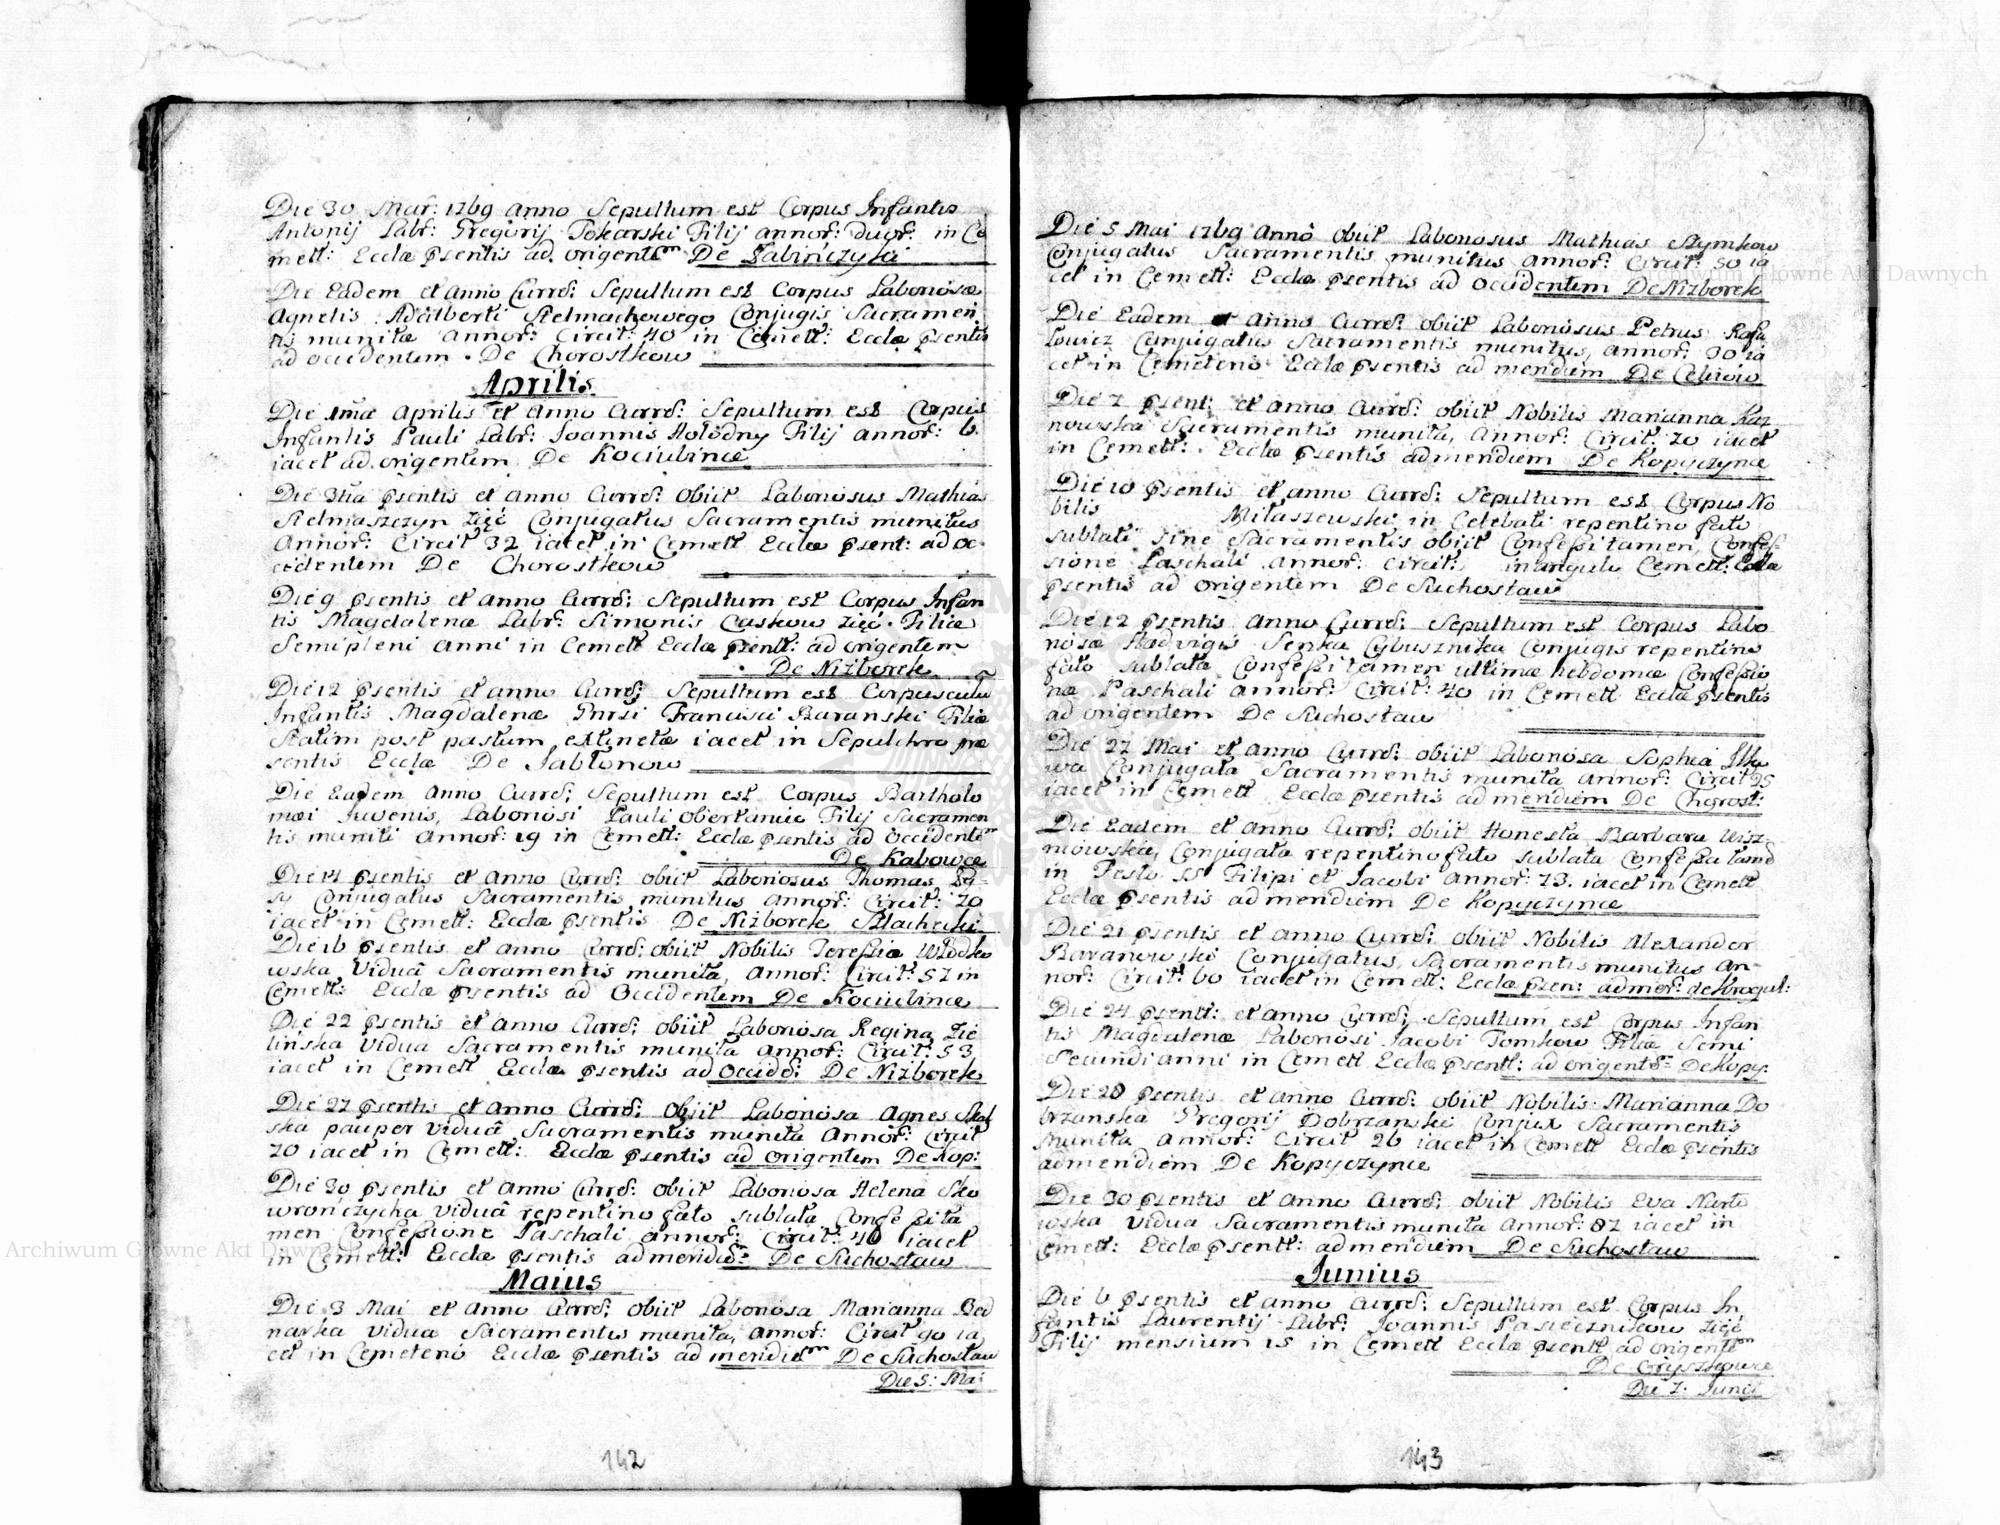 Die 30 Mar: 1769 anno Sepultum est Corpus Infantis
Antonij Labr: Gregorij Tokarski Filij annor: duor: in Ce
mett: Eccłæ psentis ad origentem De Łabińczyki
Die Eadem et anno Currē: Sepultum est Corpus Laboriosæ
Agnetis Adalberti Stelmachowego Conjugis Sacramen
tis munitæ annor: Circit: 40 in Cemett: Ecclæ psentis
ad occidentem De Chorostkow
Aprilis
Die 1ma Aprilis et anno Currē: Sepultum est Corpus
Infantis Pauli Labr: Joannis Hołodny Filij annor: 6.
iacet ad origentem De Kociubince
Die 3tia psentis et anno Currē: obiit Laboriosus Mathias
Stelmaszczyn zięć Conjugatus Sacramentis munitus
Annor: Circit 32 iacet in Cemett Ecclæ psent: ad oc
cidentem De Chorostkow
Die 9 psentis et anno Currē: Sepultum est Corpus Infan
tis Magdalenæ Labr: Simonis zięć Filiæ
Semipleni anni in Cemett Ecclæ psentt: ad origentem
De Niżborek
Die 12 psentis et anno Currē: Sepultum est Corpusculū
Infantis Magdalenæ Gnrsi Francisci Baranski Filiæ
Statim post partum extinctæ iacet in Sepulchro præ
sentis Ecclæ De Jabłonow
Die Eadem Anno Currē: Sepultum est Corpus Bartholo
mæi Juvenis, Laboriosi Pauli Obertaniuc Filij Sacramen
tis muniti annor: 19 in Cemett: Ecclæ psentis ad Occidentem
De Kabowce
Die 14 psentis et anno Currē: obiit Laboriosus Thomas
sy Conjugatus Sacramentis munitus annor: Circit: 70
iacet in Cemett: Ecclæ psentis De Niżborek Szlachecki
Die 16 psentis et anno Currē: obiit Nobilis Teressia Włodko
wska Viduā Sacramentis munita, annor: Circit: 57 in
Cemett: Ecclæ psentis ad Occidentem De Kociubince
Die 22 psentis et anno Currē: obiit Laboriosa Regina Zie
lińska Vidua Sacramentis munita annor: Circit: 53
iacet in Cemett Ecclæ psentis ad Occidē: De Niżborek
Die 27 psentis et anno Currē: obiit Laboriosa Agnes Skal
ska pauper Viduā Sacramentis munita Annor: Circit
70 iacet in Cemett: Ecclæ psentis ad origentem De Kop:
Die 30 psentis et anno Currē: obiit Laboriosa Helena Sko
wrończycha viduā repentino fato sublata Confessi ta
men Confessione Paschali annor: Circit: 40 iacet
in Cemett: Ecclæ psentis ad meridiē: De Suchostaw
Maius
Die 3 Mai et anno Currē: obiit Laboriosa Marianna Bed
narka Vidua Sacramentis munita, annor: Circit 90 ia
cet in Cemeterio Ecclæ psentis ad meridiem De Suchostaw
Die 5: Mai
142
Die 5 Mai 1769 Anno obiit Laboriosus Mathias Szymkow
Conjugatus Sacramentis munitus annor: Circit: 50 ia
cet in Cemett: Ecclæ psentis ad occidentem De Niżborek
Die Eadem et Anno Currē: obiit Laboriosus Petrus Rafa
łowicz Conjugatus Sacramentis munitus, annor: 30 ia
cet in Cemeterio Ecclæ psentis ad meridiem De Celiiow
Die 7 psent: et anno Currē: obiit Nobilis Marianna Kaz
nowska Sacramentis munita, Annor: Circit: 70 iacet
in Cemett: Ecclæ psentis ad meridiem De Kopyczynce
Die 10 psentis et anno Currē: Sepultum est Corpus No
bilis Miłaszewski, in Celebati repentino fato
sublati sine Sacramentis obiit Confessi tamen, Confes
sione Paschali annor: circit: in angulo Cemett: Ecclæ
psentis ad origentem De Suchostaw
Die 12 psentis anno Currē: Sepultum est Corpus Labo
riosæ Hadvigis Senka Cybusznika Conjugis repentino
fato sublatæ Confessi tamen ultimæ hebdomæ Confessio
næ Paschali annor: Circit: 40 in Cemett Ecclæ psentis
ad origentem De Suchostaw
Die 27 Mai et anno Currē: obiit Laboriosa Sophia
wa Conjugata Sacramentis munita annor: Circit 25
iacet in Cemett Ecclæ psentis ad meridiem De Chorost:
Die Eadem et anno Currē: obiit Honesta Barbara Wisz
niowska, Conjugata repentino fato sublata Confessa tamē
in Festo SS Filipi et Jacobi annor: 73. iacet in Cemett
Ecclæ psentis ad meridiem De Kopyczynce
Die 21 psentis et anno Currē: obiit Nobilis Alexander
Baranowski Conjugatus, Sacramentis munitus an
nor: Circit: 60 iacet in Cemett: Ecclæ psen: ad mer: de Krogul:
Die 24 psentt: et anno Currē: Sepultum est Corpus Infan
tis Magdalenæ Laboriosi Jacobi Tomkow Filiæ Semi
Secundi anni in Cemett Ecclæ psentt: ad origentē De Kopy:
Die 28 psentis et anno Currē: obiit Nobilis Marianna Do
brzanska Gregorij Dobrzanski Conjux Sacramentis
Munita annor: Circit 26 iacet in Cemett Ecclæ psentis
ad meridiem De Kopyczynce
Die 30 psentis et anno Currē: obiit Nobilis Eva Narto
wska Vidua Sacramentis munita annor: 87 iacet in
Cemett: Ecclæ psentt: ad meridiem De Suchostaw
Junius
Die 6 psentis et anno Currē: Sepultum est Corpus In
fantis Laurentij Labr: Joannis Pasiecznikow zięć
Filij mensium 15 in Cemett Ecclæ psentt ad origentem
De Oryszkowce
Die 7. Junij
143
Archiwum Główne Akt Dawnych
Archiwum Główne Akt Dawnych